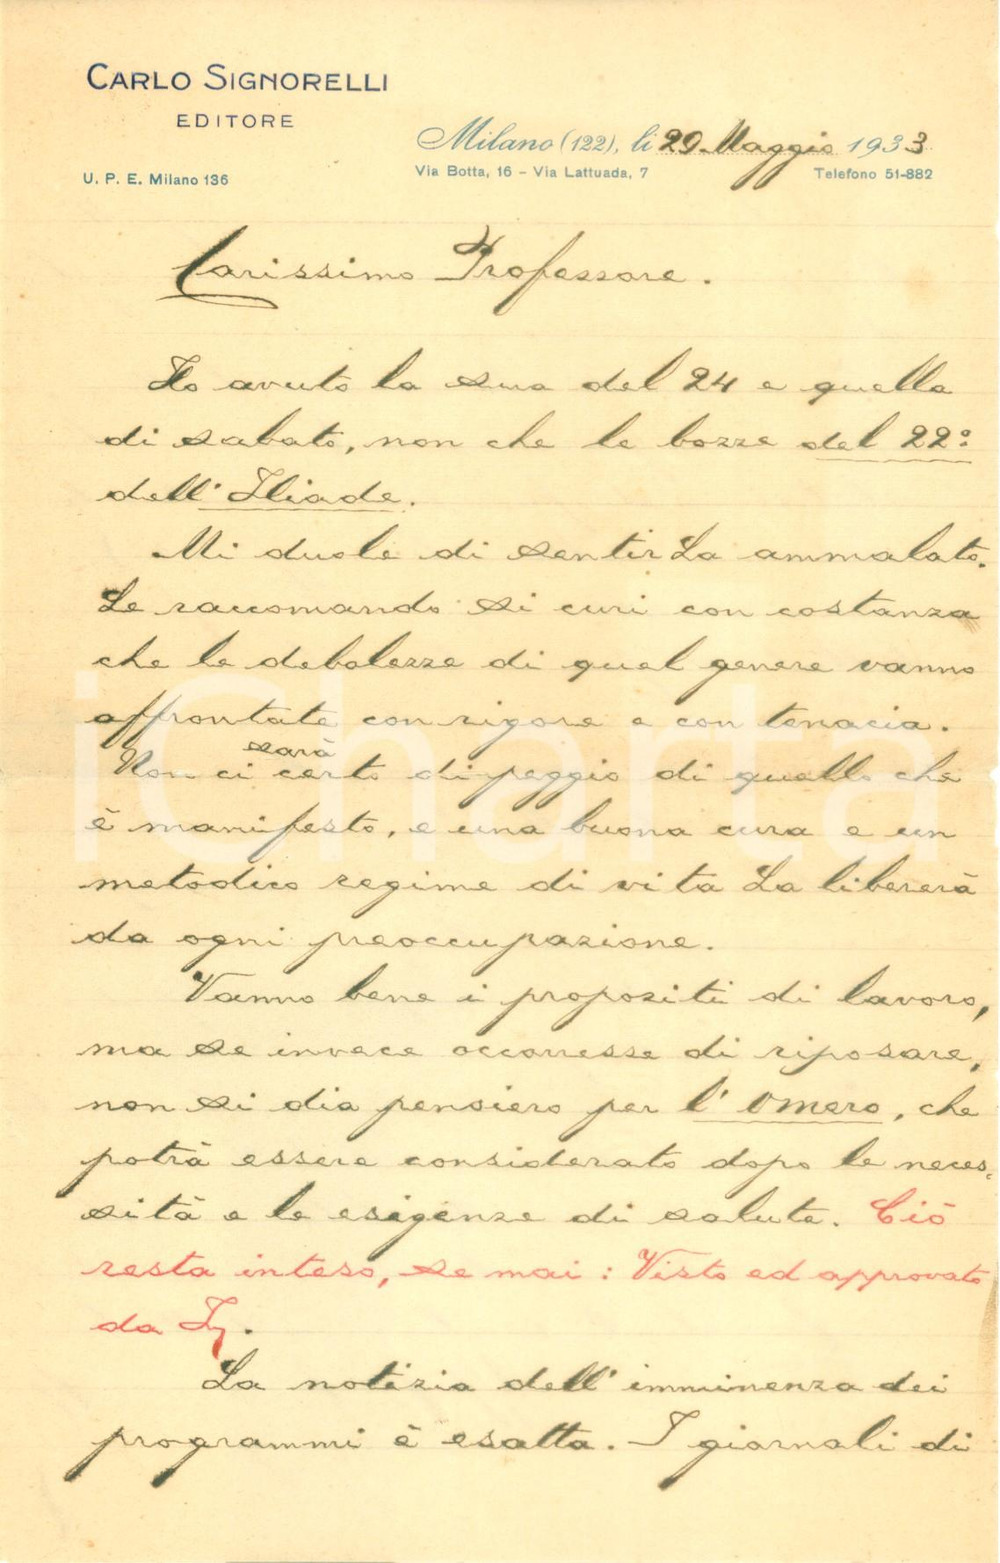 CARLO SIGNORELLI
EDITORE
U. P. E. Milano 136
Milano (122), li 29 Maggio 1933
Via Botta, 16 - Via Lattuada, 7
Telefono 51-882
Carissimo Professore.
Ho avuto la sua del 24 e quella
di sabato, non che le bozze del 22°
dell'Iliade.
Mi duole di sentirLa ammalato.
Le raccomando si curi con costanza
che le debolezze di quel genere vanno
affrontate con rigore e con tenacia.
sarà
Non ci certo di peggio di quello che
è manifesto, e una buona cura e un
metodico regime di vita La libererà
da ogni preoccupazione.
Vanno bene i propositi di lavoro,
ma se invece occorresse di riposare,
non si dia pensiero per l'Omero, che
potrà essere considerato dopo le neces-
sità e le esigenze di salute. Ciò
resta inteso, se mai: Visto ed approvato
da
La notizia dell'imminenza dei
programmi è esatta. I giornali di
iCharta